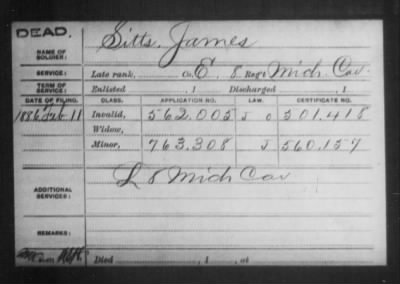 DEAD.
NAME OF SOLDIER: Sitts, James
SERVICE: Late rank, Co. E, 8 Reg't Mich Cav.
TERM OF SERVICE: Enlisted , 1 Discharged , 1
DATE OF FILING. CLASS. APPLICATION NO. LAW. CERTIFICATE NO.
1886 Feb 11 Invalid, 562.005 J O 301.418
Widow,
Minor, 763.308 J 560.157
ADDITIONAL SERVICES: L 8 Mich Cav
REMARKS:
Died , 1 , at